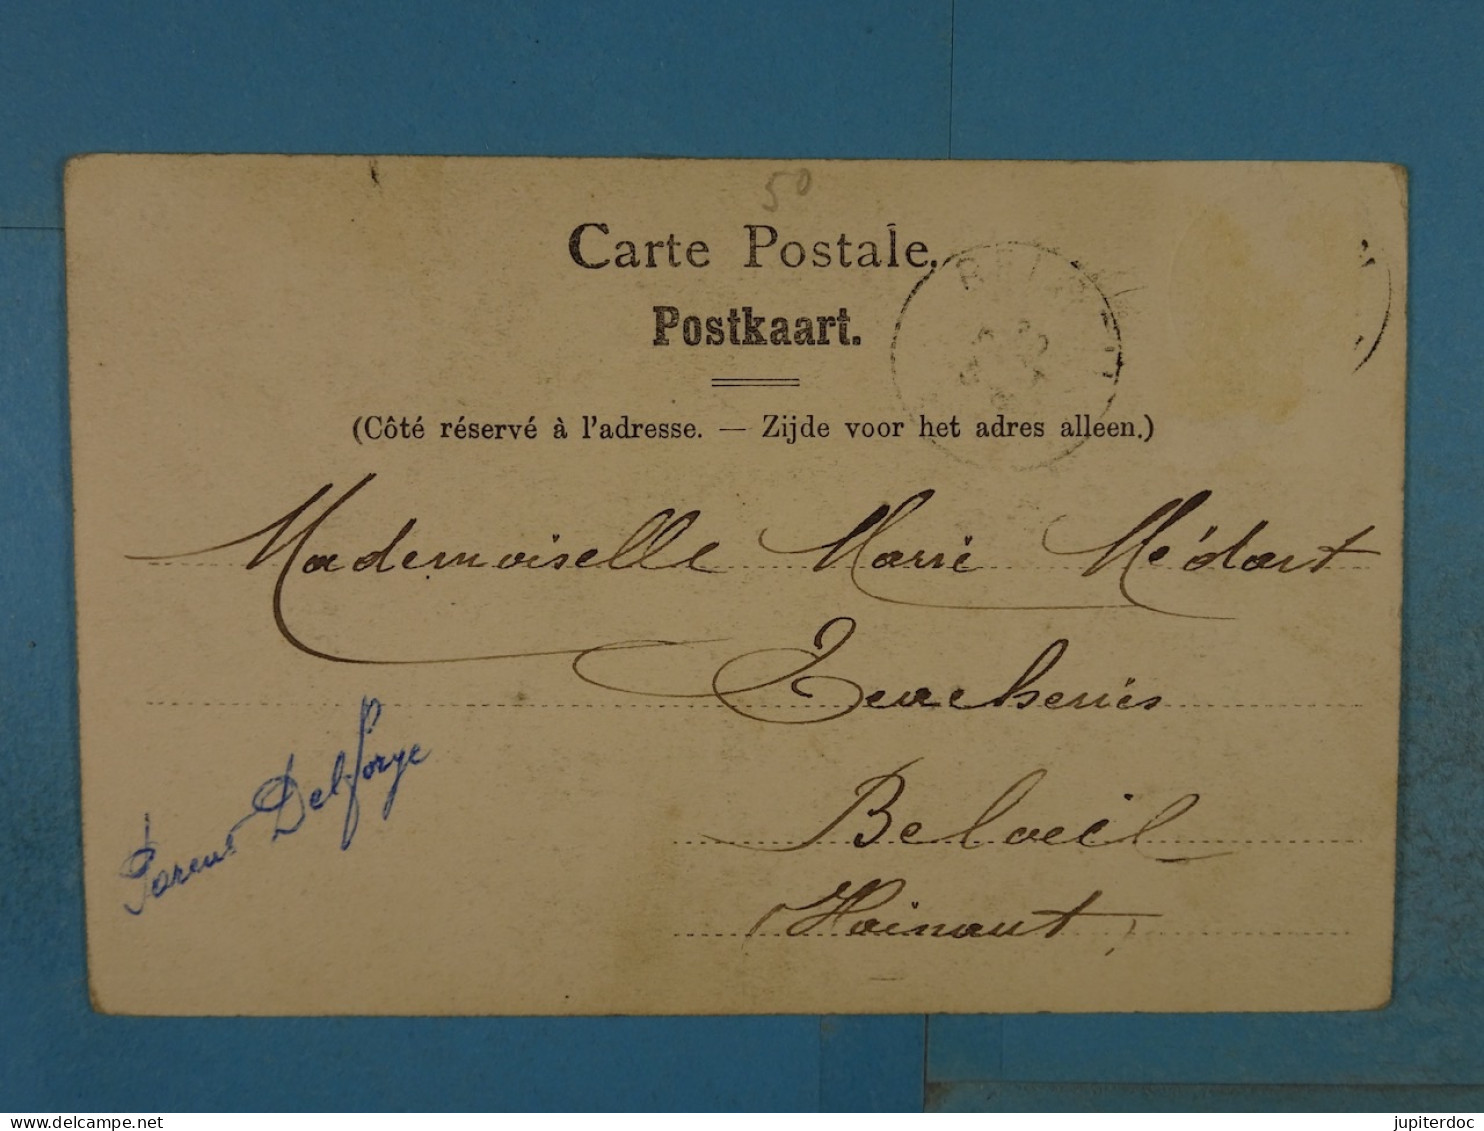 50
Carte Postale.
Postkaart.
(Côté réservé à l'adresse. — Zijde voor het adres alleen.)
Mademoiselle Marie Médart
Beloeil
Hainaut
Delforge
delcampe.net
jupiterdoc